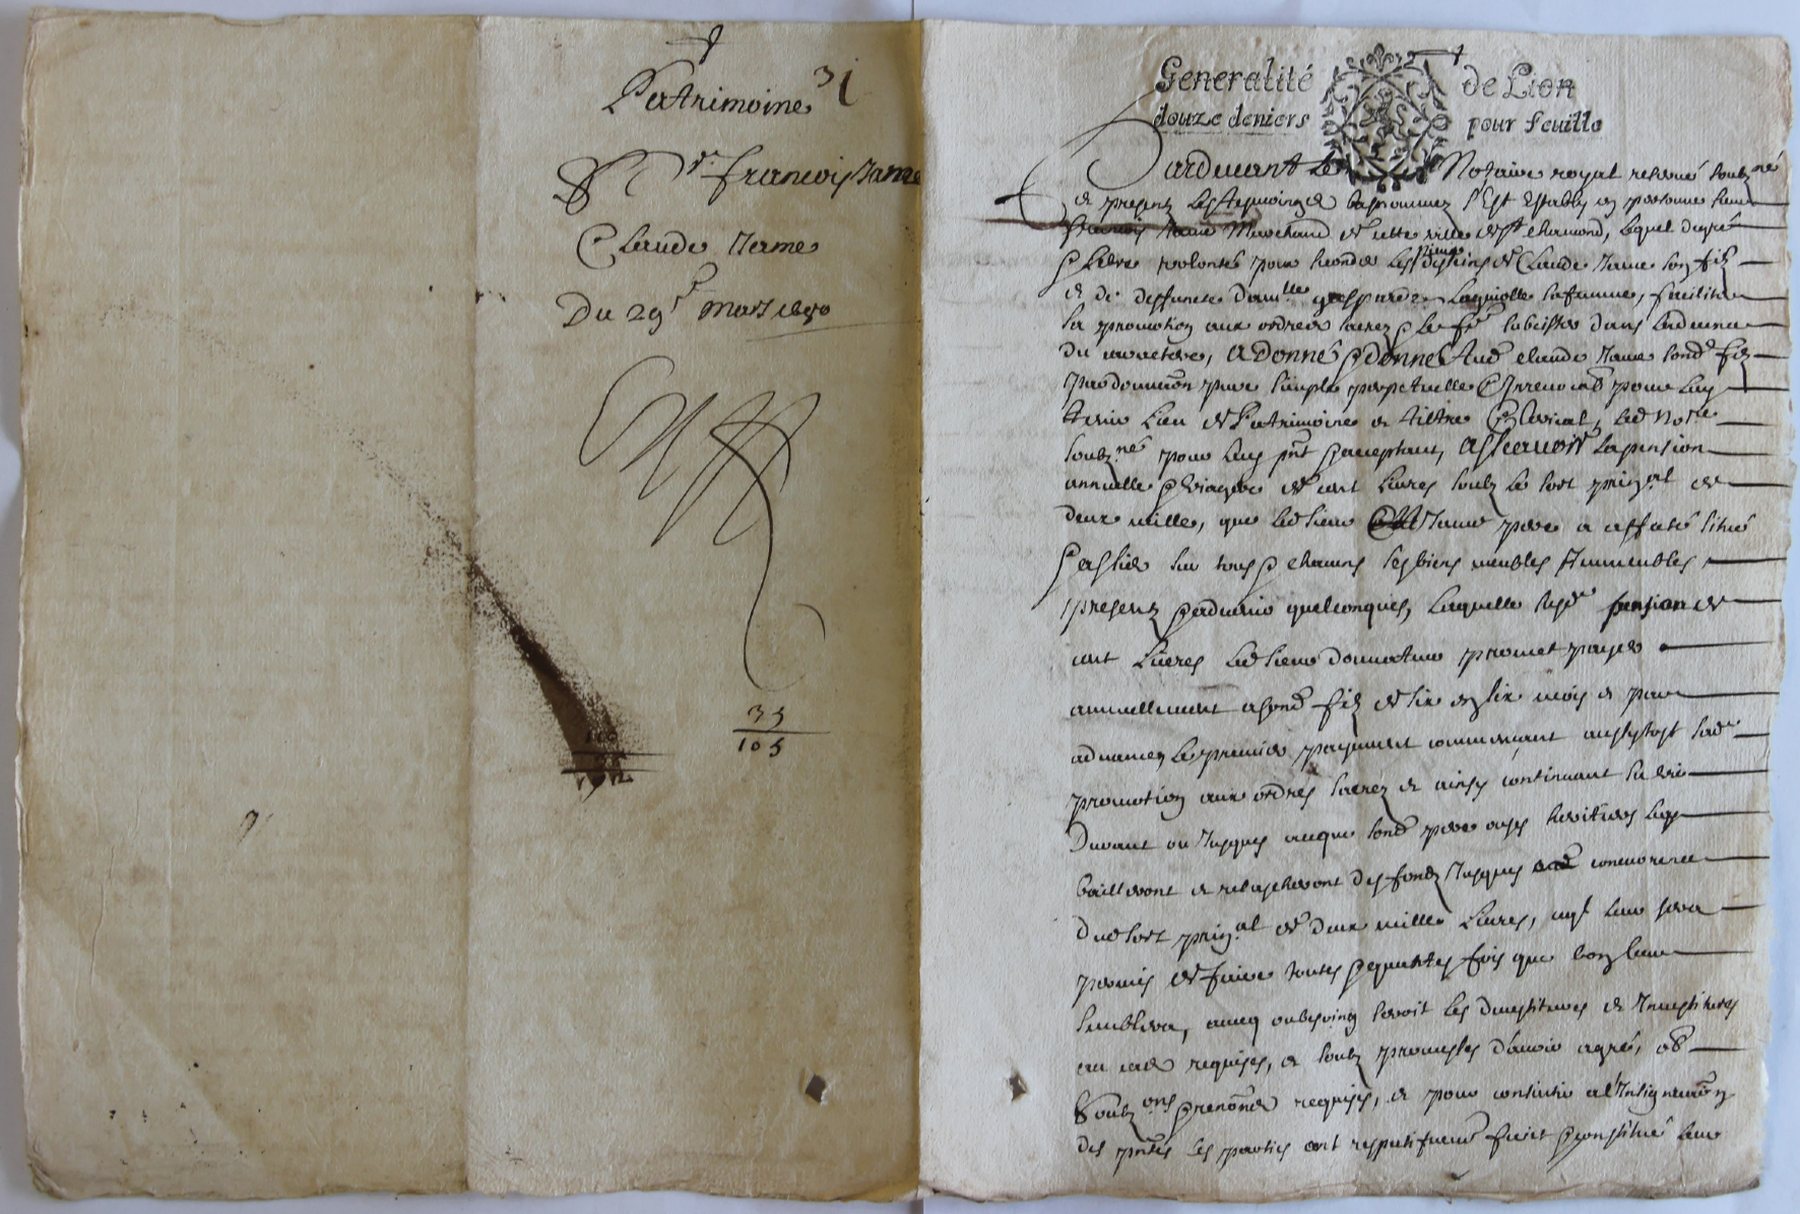 31
Patrimoine
Sr francois Jame
Claude Jame
Du 29e Mars 1690
35
105
Generalité de Lion
douze deniers pour feuille
Pardevant le Notaire royal reservé soubzné
& presentz les tesmoingz bas nommez s'est estably en personne sieur
francois Jame Marchand de cette ville de St chamond, lequel de gré
& libre volonté pour seconder les pieux desseins de Claude Jame son filz
& de deffuncte damlle gasparde Laguiolle sa femme, faciliter
sa promotion aux ordres sacrez & le fe subcister dans la decence
du caractere, a donné & donne Aud claude Jame sond filz
par donnaon pure simple perpetuelle & Irrevocab pour luy
tenir Lieu de Patrimoine & tiltre Clerical, led Nore
soubzné pour luy pnt & acceptant, a scavoir la pension
annuelle & viagere de cent Livres soubz le sort prinal de
deux mille, que led sieur Jame pere a affecté situé
& assis sur tous & chacuns ses biens meubles Immeubles
presentz & advenir quelconques, laquelle susde pension de
cent Livres led sieur donnateur promet payer
annuellement a sond filz de six en six mois & par
advance, le premier payement commencant aussytost lade
promotion aux ordres sacrez & ainsy continuant sa vie
Durant ou Jusques a ce que sond pere ou ses heritiers luy
bailleront & relascheront des fondz Jusques concurrence
dud sort prinal de deux mille Livres, ce quil leur sera
permis de faire toutes & quantes fois que bon leur
semblera, avec au besoing seroit les devestitures & Investitures
en cas requises, & soubz promesses d'avoir agré, ob
soubzons & renonons requises, & pour consentir a l'Insignuaon
des pntes les parties ont respectifuemt fait & constitué leur